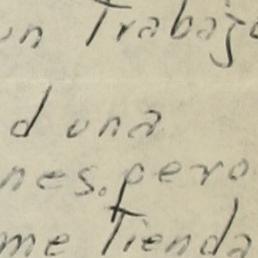 un Trabajo
d una
nes. pero
me Tienda